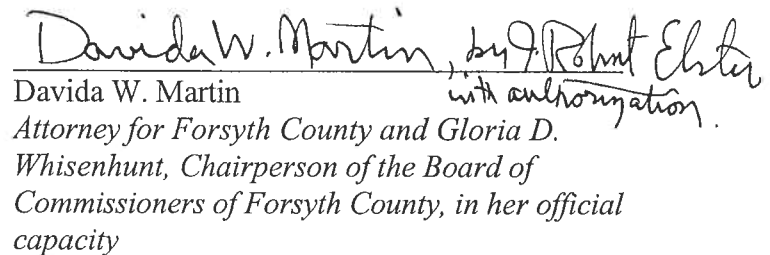 Davida W. Martin, by J. Robert Elster
with authorization.
Davida W. Martin
Attorney for Forsyth County and Gloria D.
Whisenhunt, Chairperson of the Board of
Commissioners of Forsyth County, in her official
capacity